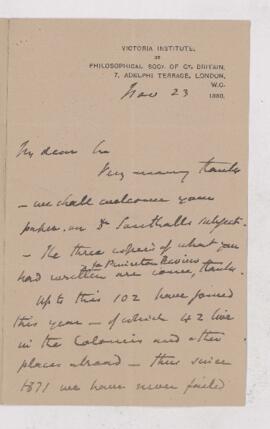 VICTORIA INSTITUTE,
OR
PHILOSOPHICAL SOCY. OF GT. BRITAIN,
7, ADELPHI TERRACE, LONDON,
W.C.
Nov 23 1880.
My dear Sir
Very many thanks
- we shall welcome your
paper on Dr Southalls subject-
- The three copies of what you
for Princeton Review
had written are come, thanks
Up to this 102 have joined
this year - of which 42 live
in the Colonies and other
places abroad - thus since
1871 we have never failed